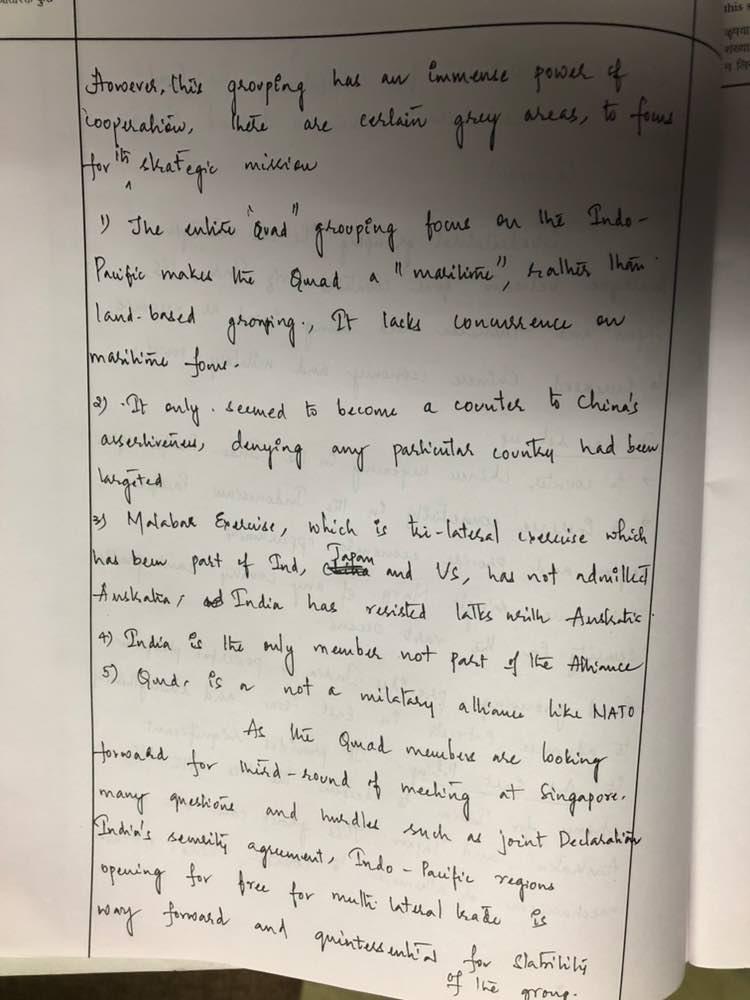 this
However, this grouping has an immense power of
cooperation, there are certain grey areas, to focus
for its strategic mission
1) The entire "Quad" grouping focus on the Indo-
Pacific makes the Quad a "maritime", rather than
land-based grouping., It lacks concurrence on
maritime focus.
2) It only seemed to become a counter to China's
assertiveness, denying any particular country had been
targeted
3) Malabar Exercise, which is tri-lateral exercise which
has been part of Ind, Japan and US, has not admitted
Australia, India has resisted talks with Australia
4) India is the only member not part of the Alliance
5) Quad. is a not a militatary alliance like NATO
As the Quad members are looking
forward for third-round of meeting at Singapore.
many questions and hurdles such as joint Declaration
India's security agreement, Indo-Pacific regions
opening for free for multi lateral trade is
way forward and quintessential for stability
of the group.